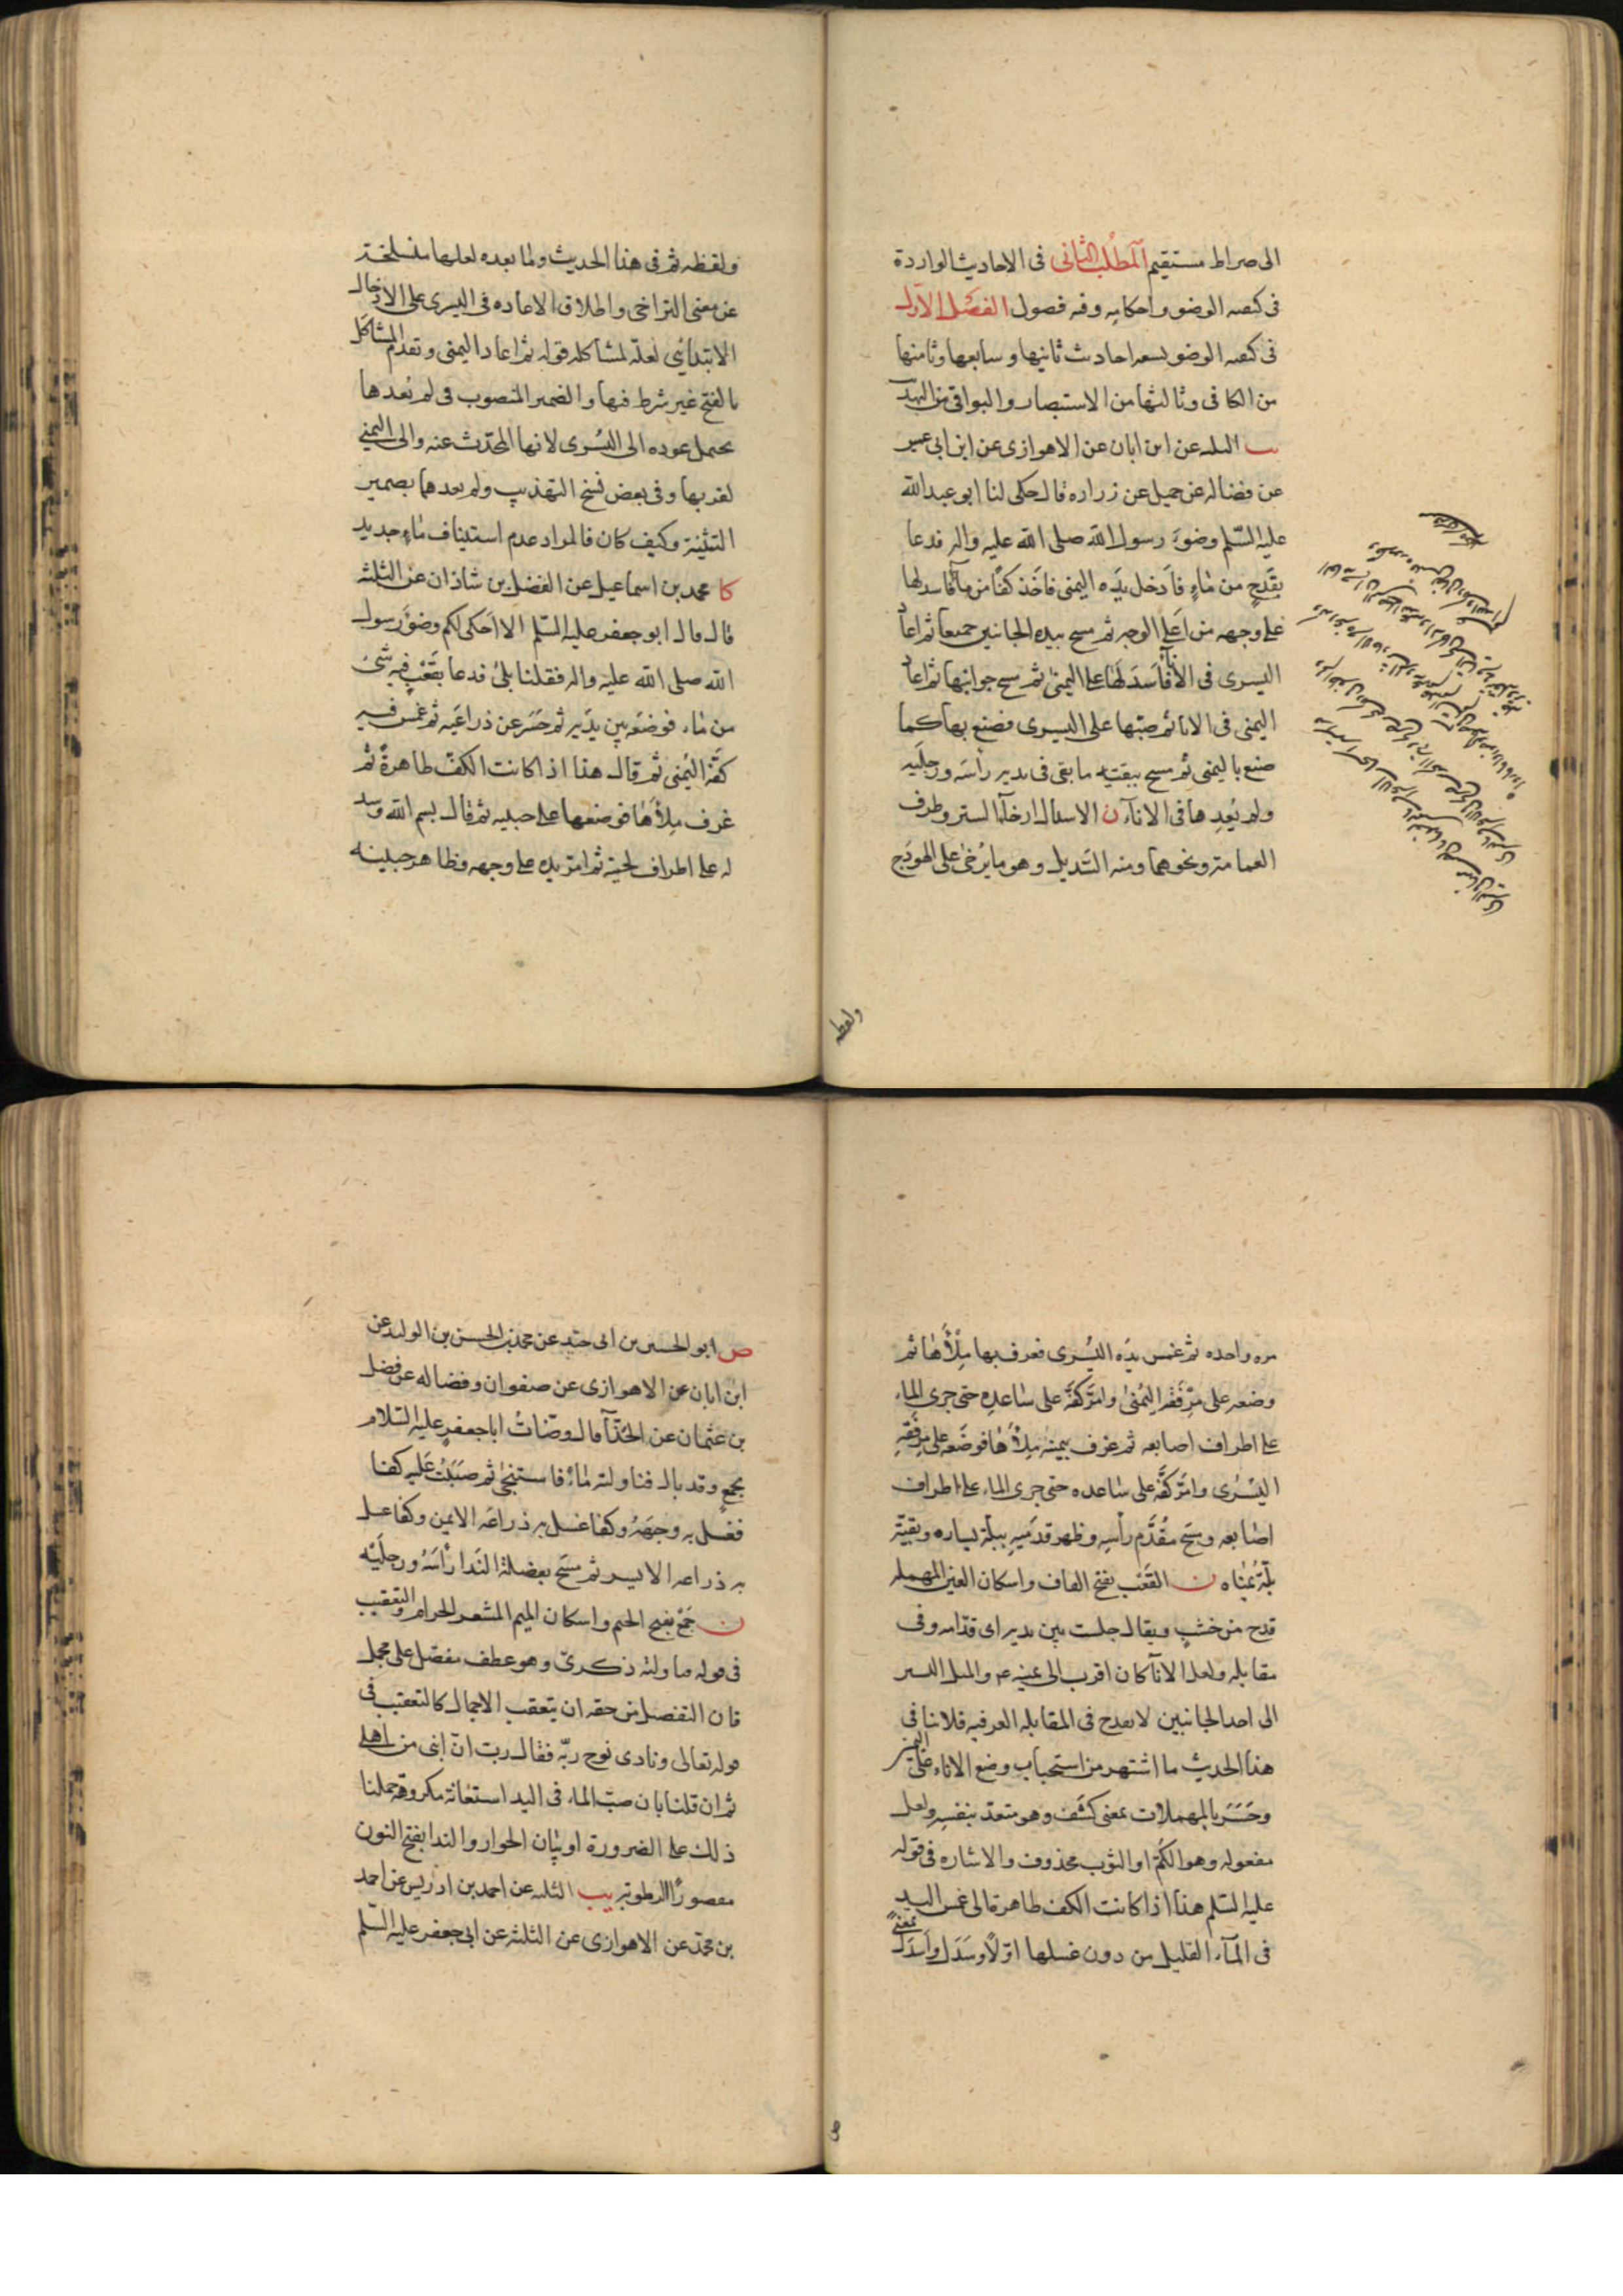 الى صراط مستقيم المطلب الثانى فى الاحاديث الواردة
فى كيفيه الوضو واحكامه وفيه فصول الفصل الاول
فى كيفيه الوضو تسعه احاديث ثانيها وسابعها وثامنها
من الكافى وثالثها من الاستبصار والبواقى من التهذيب
يب الثلثه عن ابن ابان عن الاهوازى عن ابن ابى عمير
عن فضاله عن جميل عن زراره قال حكى لنا ابو عبدالله
عليه السّلم وضوَء رسول الله صلى الله عليه واله فدعا
بقَدَحٍ من ماءٍ فاَدخل يَدَه اليمنى فاخَذ كفّا من مآء فاسدلها
على وجهه من اَعلى الوجه ثم مسح بيده الجانبين جميعا ثم اعاد
اليسرى فى الاناء فاَسدَلَها على اليمنى ثم مسح جوانبها ثم اعاد
اليمنى فى الانا ثم صبّها على اليسرى فصنع بها كما
صنع باليمنى ثم مسح ببقيّه ما بقى فى يديه راسَه ورجلَيه
ولم يُعِدها فى الانآء ن الاسدال ارخآء الستر وطرف
العمامة ونحوهما ومنه السّديل وهو ما يُرخىٰ على الهودَج
ولفظه
ولفظه ثم فى هذا الحديث ولما بعده لعلها منسلخة
عن معنى التراخى واطلاق الاعاده فى اليسرى على الادخال
الابتدائى لعلّه لمشاكله قوله ثم اعاد اليمنى وتقدم المشاكَل
بالفتح غير شرط فيها والضمير المنصوب فى لم يُعدها
يحتمل عوده الى اليُسرى لانها المحدّث عنه والى اليمنى
لقربها وفى بعض نسخ التهذيب ولم يعدهما بضمير
التثنية وكيف كان فالمراد عدم استيناف ماءٍ جديد
كا محمد بن اسماعيل عن الفضل بن شاذان عن الثلثه
قال قال ابو جعفر عليه السّلم الا اَحكى لكم وضوَء رسول
الله صلى الله عليه واله فقلنا بلىٰ فدعا بقَعْبٍ فيه شئ
من ماء فوضعَه بين يدَيه ثم حَسَر عن ذراعَيه ثم غمس فيه
كفَّه اليُمنى ثم قال هذا اذا كانت الكفّ طاهرةً ثم
غرف مِلأها فوضعها على جبينه ثم قال بسم الله وسد
له على اطراف لحيته ثم امرّ يده على وجهه وظاهر جبينه
مره واحده ثم غمس يدَه اليُسرى فغرف بها مِلْأها ثم
وضعه على مِرْفقه اليُمنى وامَرَّ كفَّه على ساعده حتى جرى الماء
على اطراف اصابعه ثم غرف بيمينه مِلْأها فوضَعه على مِرفقه
اليُسرى وامَرّ كفَّه على ساعده حتى جرى الماء على اطراف
اصابعه ومسَح مقُدَّم رأسِه وظهر قدمَيهِ ببلّة يساره وبقيّة
بلّة يُمناه ن القَعْب بفتح القاف واسكان العين المهمله
قدح من خشبٍ ويقال جلست بين يديه اى قدّامه وفى
مقابله ولعل الانآء كان اقرب الى يمينه ع والميل اليسير
الى احد الجانبين لا يقدح فى المقابله العرفيه فلا ينافى
هذا الحديث ما اشتهر من استحباب وضع الاناء على اليمين
وحَسَرَ بالمهملات بمعنى كشَف وهو متعدّ بنفسه ولعل
مفعوله وهو الكُمّ او الثوب محذوف والاشاره فى قوله
عليه السّلم هذا اذا كانت الكف طاهرة الى غمس اليد
فى المآء القليل من دون غسلها اوّلًا وسَدَل واَسدَل بمعنىً
ص ابو الحسين بن ابى جيد عن محمد بن الحسن بن الوليد عن
ابن ابان عن الاهوازى عن صفوان وفضاله عن فضل
بن عثمان عن الحذّآء قال وضّاتُ اباجعفرٍ عليه السّلام
بجمعٍ وقد بال فناولته ماءً فاستنجىٰ ثم صبَبْتُ عَليه كفّا
فغسل به وجهَهُ وكفا غسل به ذراعَه الايمن وكفا غسل
به ذراعه الايسر ثم مسَح بفضلة النَدا رأسَهُ ورجلَيْه
ن جَمْع بفتح الجيم واسكان الميم المشعر الحرام والتعقيب
فى قوله فناولته ذكرىّ وهو عطف مفصّل على مجمل
فان التفصيل من حقه ان يتعقب الاجمال كالتعقيب فى
قوله تعالى ونادى نوح ربّه فقال ربّ انّ ابنى من اهلى
ثم ان قلنا بان صبّ الماء فى اليد استعانة مكروهة حملنا
ذلك على الضرورة او بيان الجواز والندا بفتح النون
مقصورًا الرطوبة يب الثلثه عن احمد بن ادريس عن احمد
بن محمّد عن الاهوازى عن الثلثه عن ابى جعفر عليه السّلم